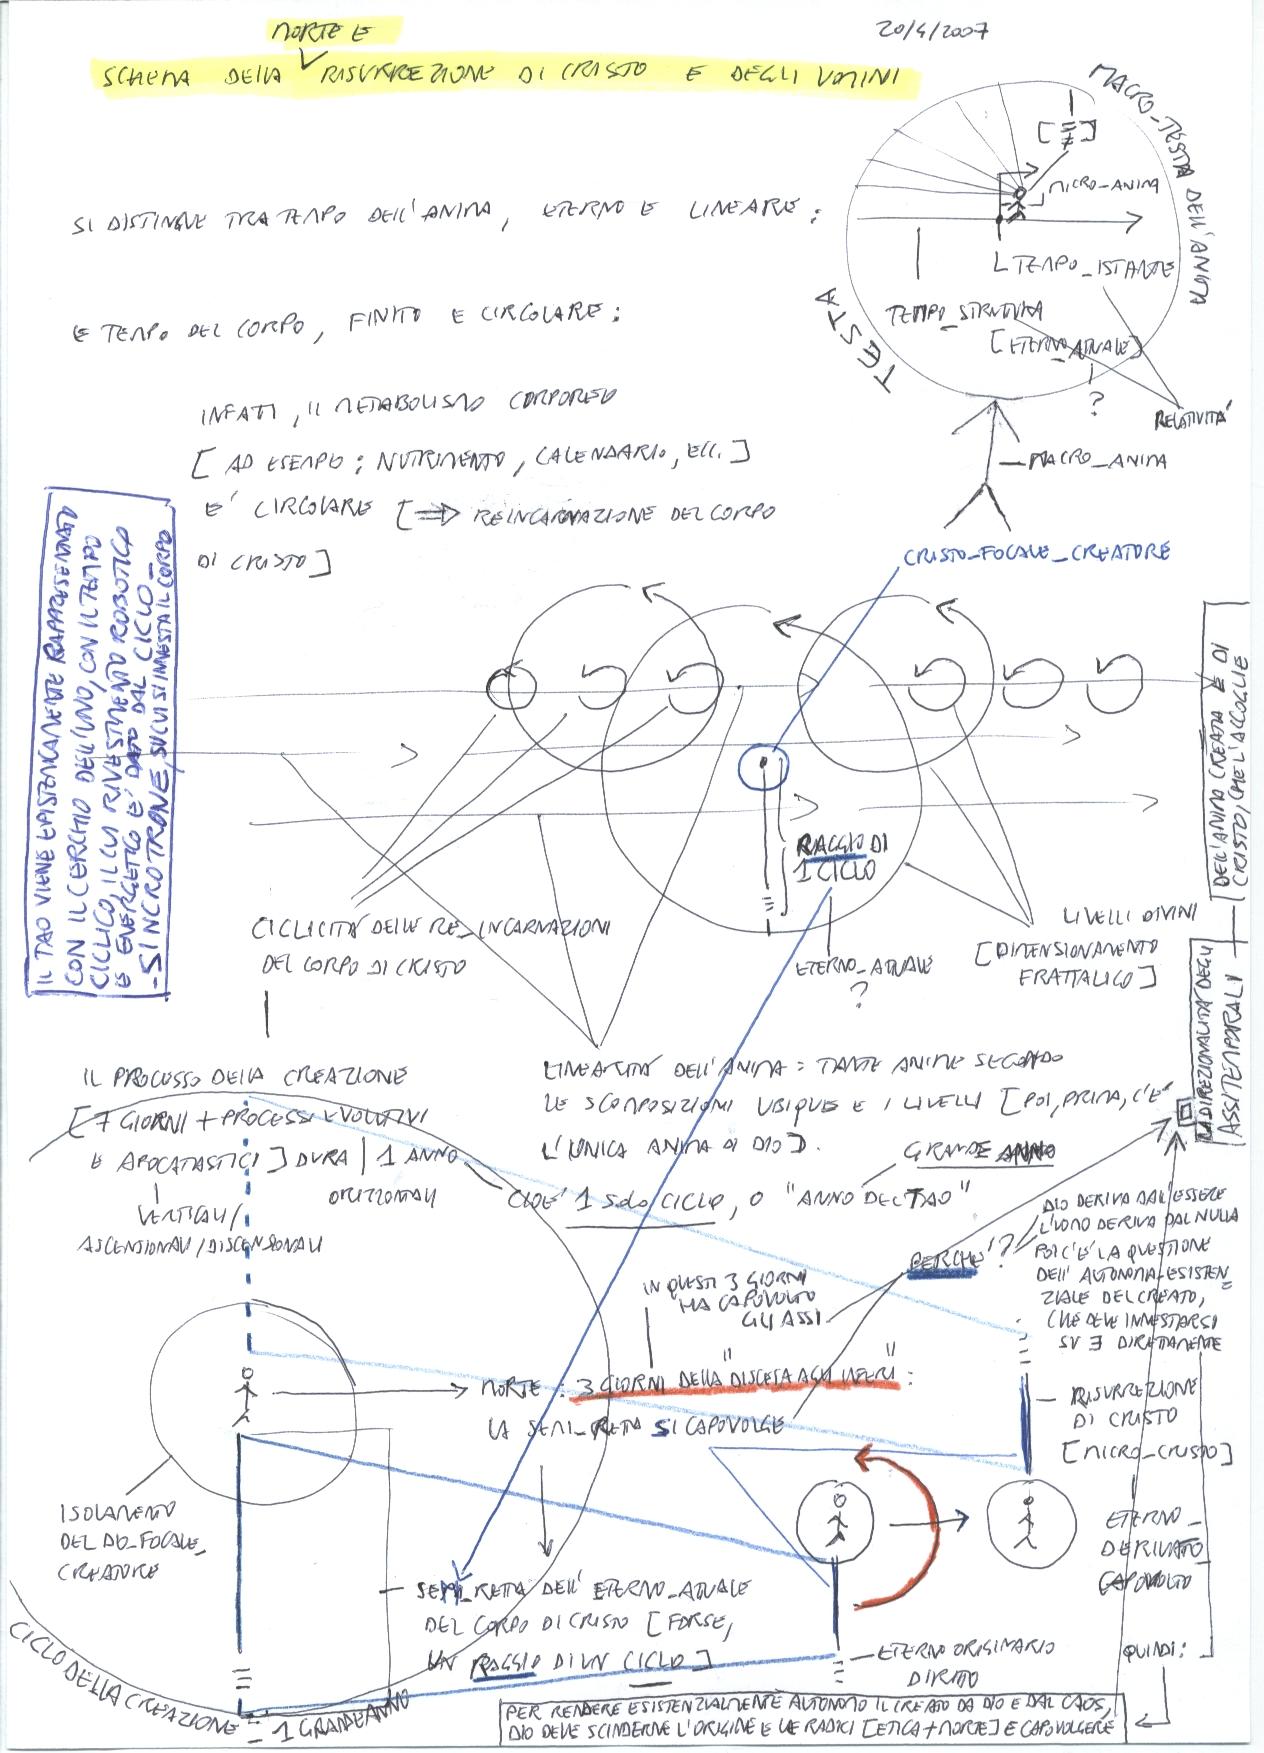 20/4/2007
MORTE E
SCHEMA DELLA RISURREZIONE DI CRISTO E DEGLI UOMINI
MACRO_TESTA DELL'ANIMA
MICRO_ANIMA
TEMPO_ISTANTE
TEMPO_STRUTTURA
[ETERNO_ATTUALE]
?
TESTA
RELATIVITÀ
MACRO_ANIMA
SI DISTINGUE TRA TEMPO DELL'ANIMA, ETERNO E LINEARE;
E TEMPO DEL CORPO, FINITO E CIRCOLARE:
INFATTI, IL METABOLISMO CORPOREO
[AD ESEMPIO: NUTRIMENTO, CALENDARIO, ECC.]
E' CIRCOLARE [⇒ REINCARNAZIONE DEL CORPO
DI CRISTO]
CRISTO_FOCALE_CREATORE
IL TAO VIENE EPISTEMICAMENTE RAPPRESENTATO
CON IL CERCHIO DELL'UNO, CON IL TEMPO
CICLICO, IL CUI RIVESTIMENTO ROBOTICO
E ENERGETICO E' DATO DAL CICLO_
-SINCROTRONE, SU CUI SI INNESTA IL CORPO
RAGGIO DI
1 CICLO
ETERNO_ATTUALE
?
CICLICITÀ DELLE RE_INCARNAZIONI
DEL CORPO DI CRISTO
LIVELLI DIVINI
[DIMENSIONAMENTO
FRATTALICO]
LA DIREZIONALITÀ DEGLI
ASSI TEMPORALI
DELL'ANIMA CREATA E' DI
CRISTO, CHE L'ACCOGLIE
IL PROCESSO DELLA CREAZIONE
[7 GIORNI + PROCESSI EVOLUTIVI
E APOCATASTICI] DURA 1 ANNO
ORIZZONTALI
VERTICALI/
ASCENSIONALI/DISCENSIONALI
LINEARITÀ DELL'ANIMA = TANTE ANIME SECONDO
LE SCOMPOSIZIONI UBIQUE E I LIVELLI [POI, PRIMA, C'E'
L'UNICA ANIMA DI DIO].
GRANDE ANNO
CIOE' 1 SOLO CICLO, O "ANNO DEL TAO"
PERCHE'?
DIO DERIVA DALL'ESSERE
L'UOMO DERIVA DAL NULLA
POI C'E' LA QUESTIONE
DELL'AUTONOMIA_ESISTEN_
ZIALE DEL CREATO,
CHE DEVE INNESTARSI
SU ∃ DIRETTAMENTE
IN QUESTI 3 GIORNI
HA CAPOVOLTO
GLI ASSI
MORTE: 3 GIORNI DELLA "DISCESA AGLI INFERI":
LA SEMI_RETTA SI CAPOVOLGE
RISURREZIONE
DI CRISTO
[MICRO_CRISTO]
ETERNO_
DERIVATO
CAPOVOLTO
ISOLAMENTO
DEL DIO_FOCALE_
CREATORE
SEMI_RETTA DELL'ETERNO_ATTUALE
DEL CORPO DI CRISTO [FORSE,
UN RAGGIO DI UN CICLO]
ETERNO ORIGINARIO
DIRITTO
QUINDI:
CICLO DELLA CREAZIONE
= 1 GRANDE ANNO
PER RENDERE ESISTENZIALMENTE AUTONOMO IL CREATO DA DIO E DAL CAOS,
DIO DEVE SCINDERNE L'ORIGINE E LE RADICI [ETICA + MORTE] E CAPOVOLGERE